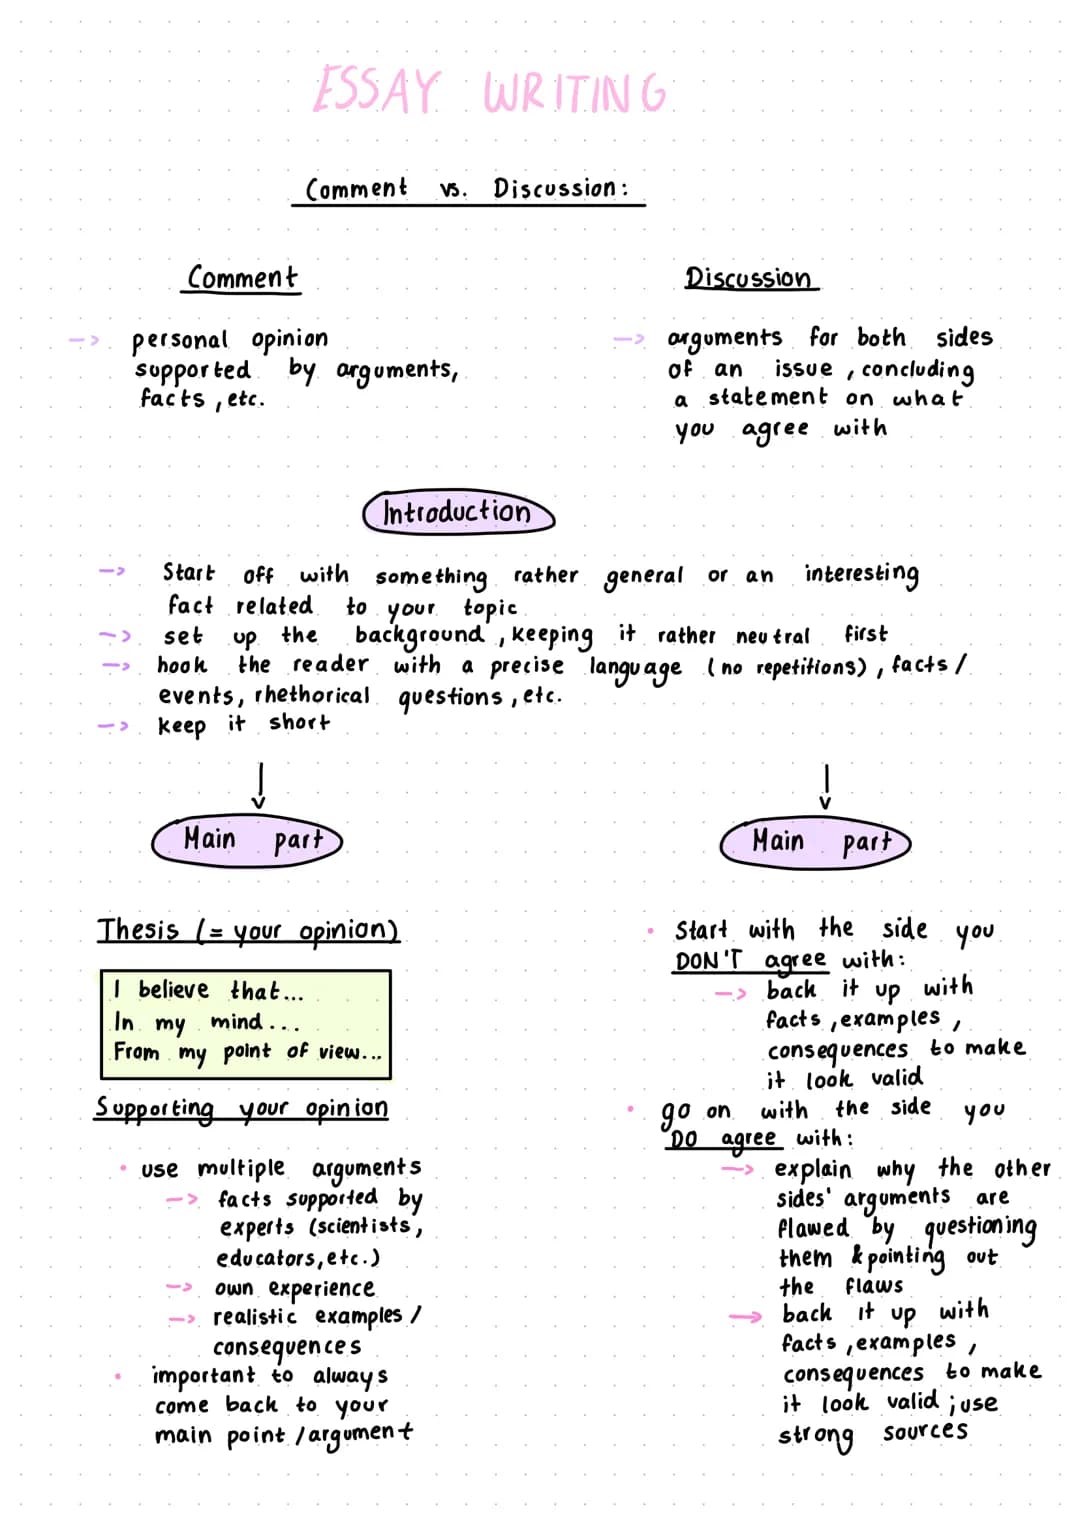 ESSAY WRITING
Comment vs. Discussion:
Comment
-> personal opinion
supported by arguments,
facts, etc.
Discussion
-> arguments for both sides
of an issue, concluding
a statement on what
you agree with
Introduction
-> Start off with something rather general or an interesting
fact related to your topic
-> set up the background, keeping it rather neutral first
-> hook the reader with a precise language (no repetitions), facts/
events, rhethorical questions, etc.
-> keep it short
Main part
Thesis (= your opinion)
I believe that...
In my mind...
From my point of view...
Supporting your opinion
• use multiple arguments
-> facts supported by
experts (scientists,
educators, etc.)
-> own experience
-> realistic examples/
consequences
• important to always
come back to your
main point/argument
Main part
• Start with the side you
DON'T agree with:
-> back it up with
facts, examples,
consequences to make
it look valid
• go on with the side you
DO agree with:
-> explain why the other
sides' arguments are
flawed by questioning
them & pointing out
the flaws
-> back it up with
facts, examples,
consequences to make
it look valid; use
strong sources